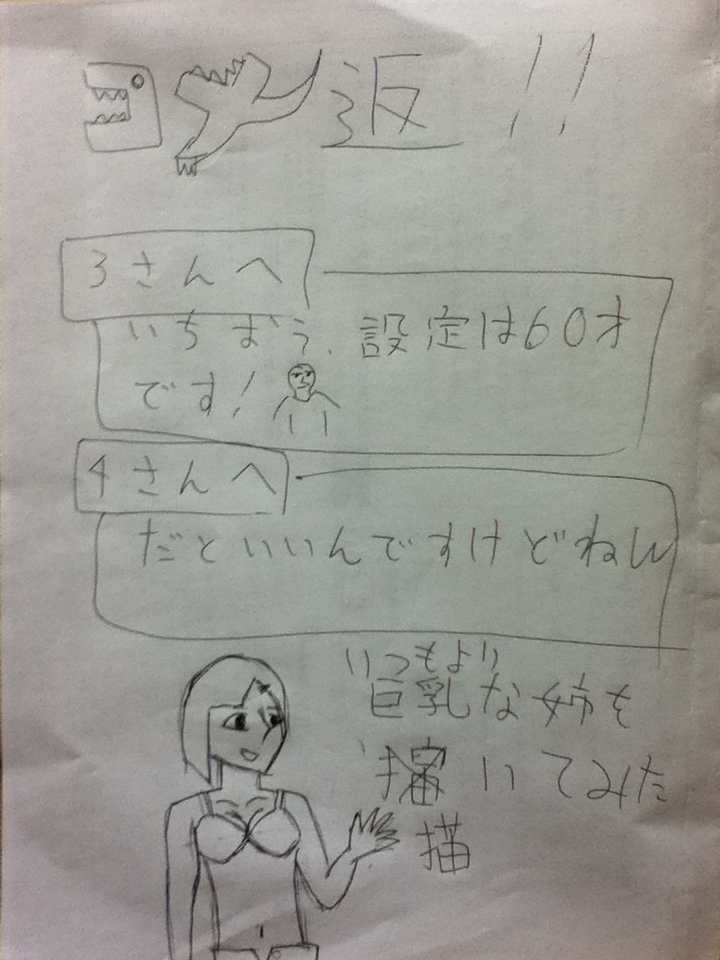 コメ返!!
3さんへ
いちおう、設定は60才
です!
4さんへ
だといいんですけどねw
いつもより
巨乳な姉を
描いてみた
描